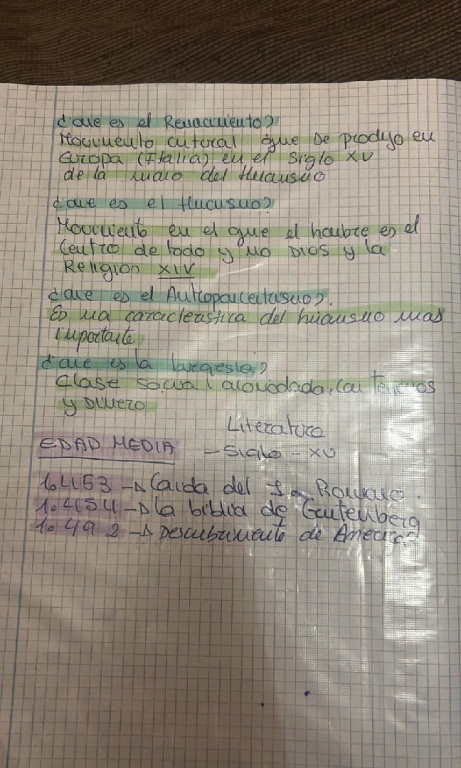 ¿Que es el Renacimiento?
Movimiento cultural que se produjo en
Europa (Italia) en el Siglo XV
de la mano del Humanismo
¿Que es el Humanismo?
Movimiento en el que el hombre es el
Centro de todo y no Dios y la
Religion XIV
¿Que es el Antropocentrismo?.
Es una caracteristica del humanismo mas
importante
¿Que es la burgesia?
Clase social acomodada, con terrenos
y Dinero
Literatura
EDAD MEDIA - Siglo - XV
1.453 → Caida del Romano.
1.454 → La biblia de Gutenberg
1.492 → Descubrimiento de America